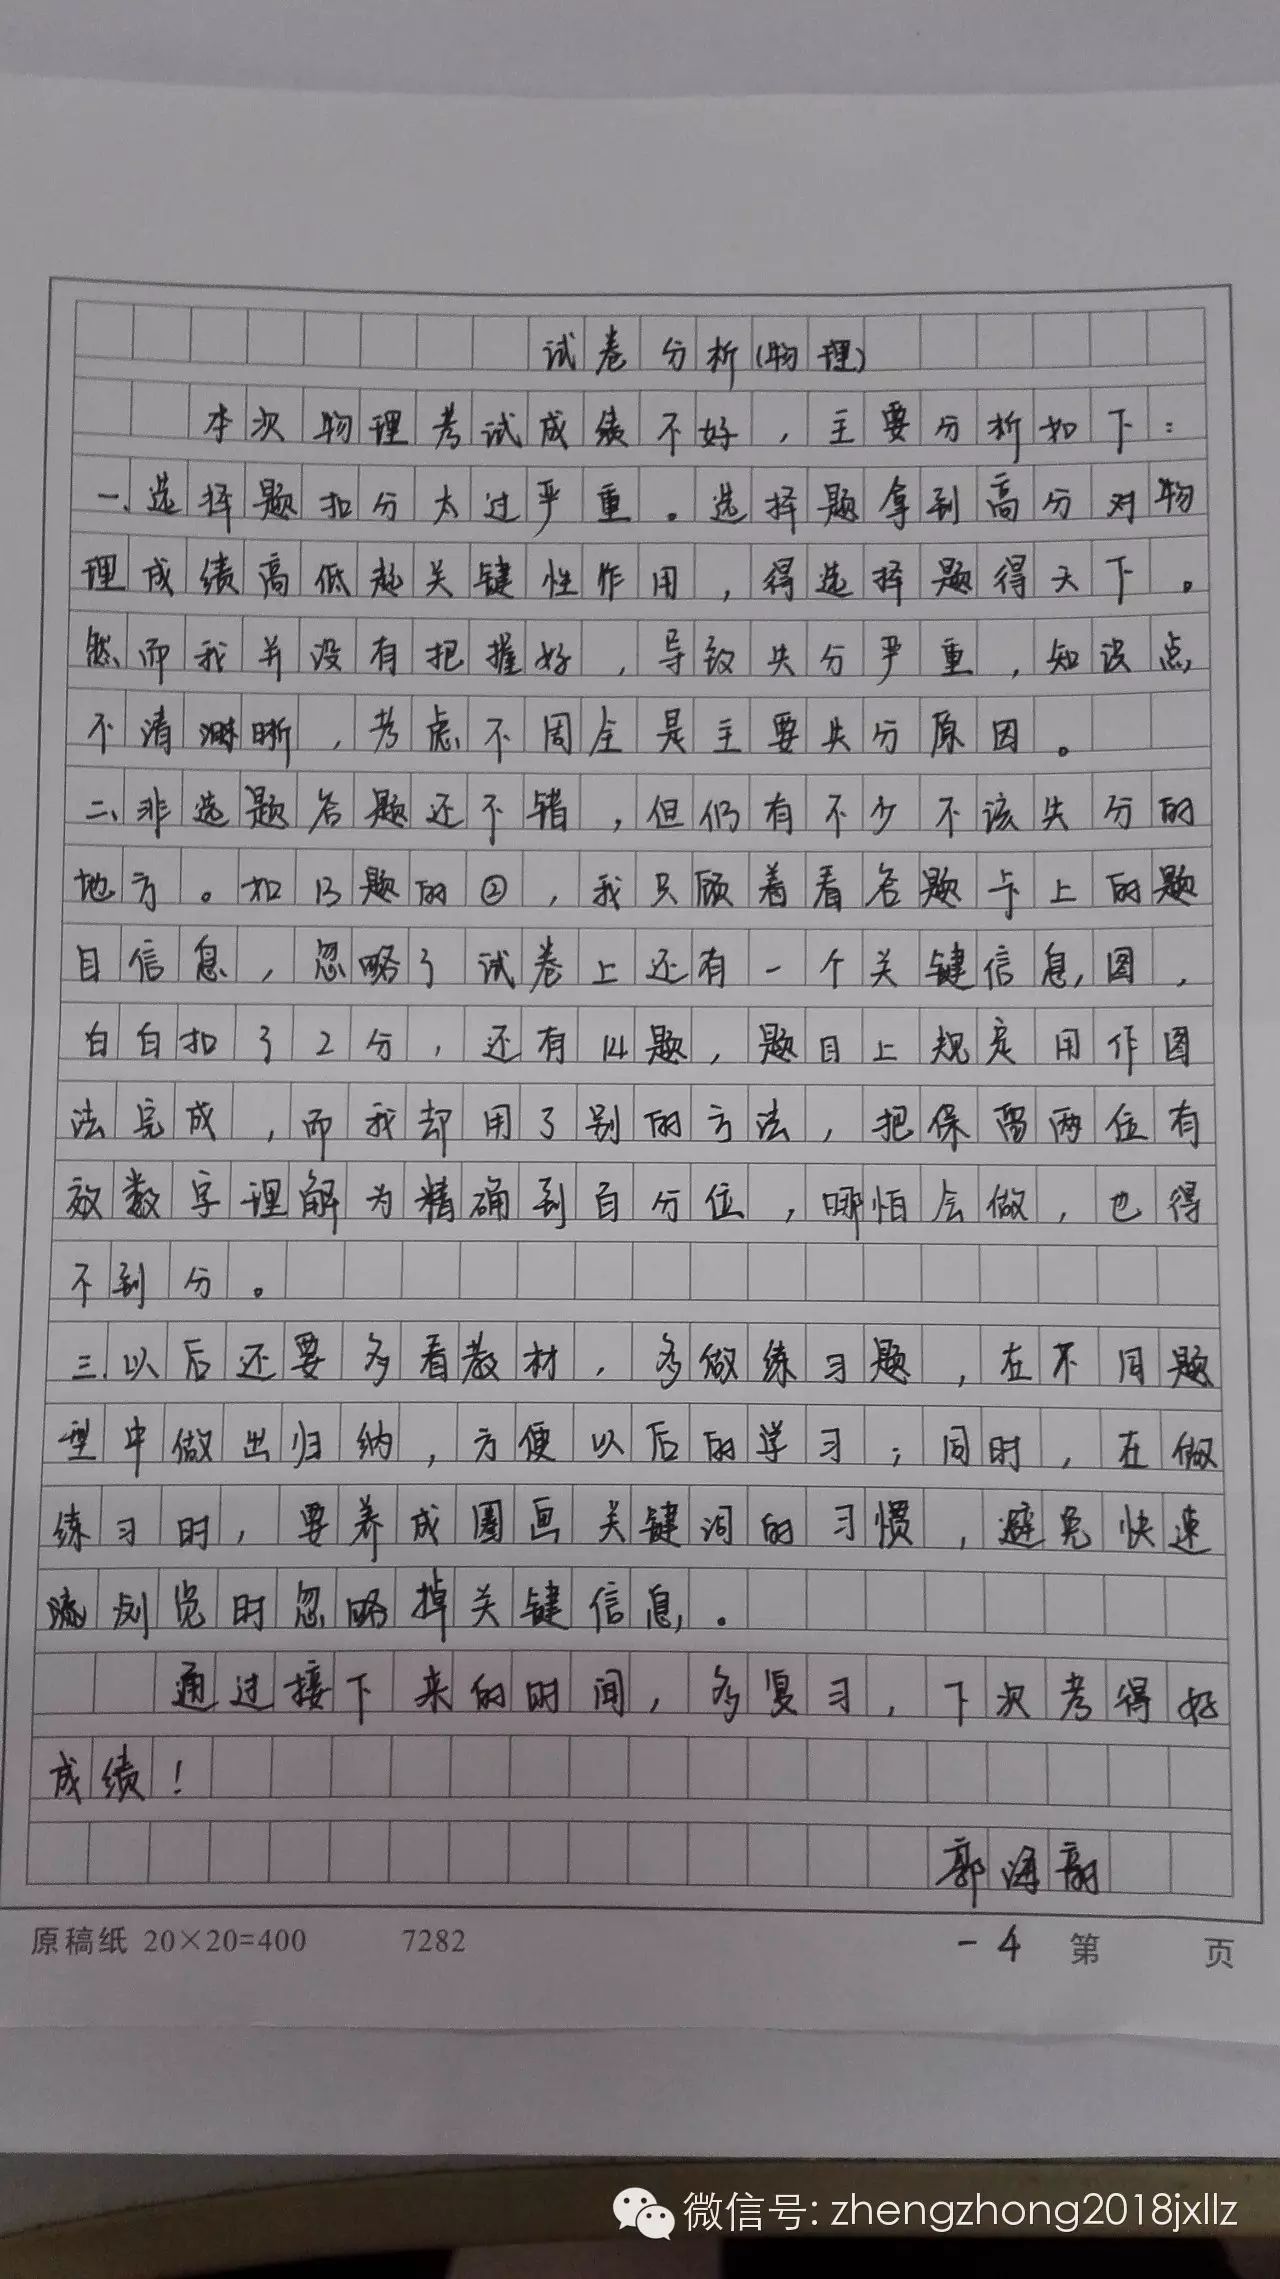 试卷分析(物理)
本次物理考试成绩不好，主要分析如下：
一、选择题扣分太过严重。选择题拿到高分对物
理成绩高低起关键性作用，得选择题得天下。
然而我并没有把握好，导致失分严重，知识点
不清晰，考虑不周全是主要失分原因。
二、非选题答题还不错，但仍有不少不该失分的
地方。如13题的②，我只顾着看答题卡上的题
目信息，忽略了试卷上还有一个关键信息，图，
白白扣了2分，还有14题，题目上规定用作图
法完成，而我却用了别的方法，把保留两位有
效数字理解为精确到百分位，哪怕会做，也得
不到分。
三、以后还要多看教材，多做练习题，在不同题
型中做出归纳，方便以后的学习；同时，在做
练习时，要养成圈画关键词的习惯，避免快速
浏览时忽略掉关键信息。
通过接下来的时间，多复习，下次考得好
成绩！
郭海
原稿纸 20×20=400 7282 -4 第 页
微信号: zhengzhong2018jxllz